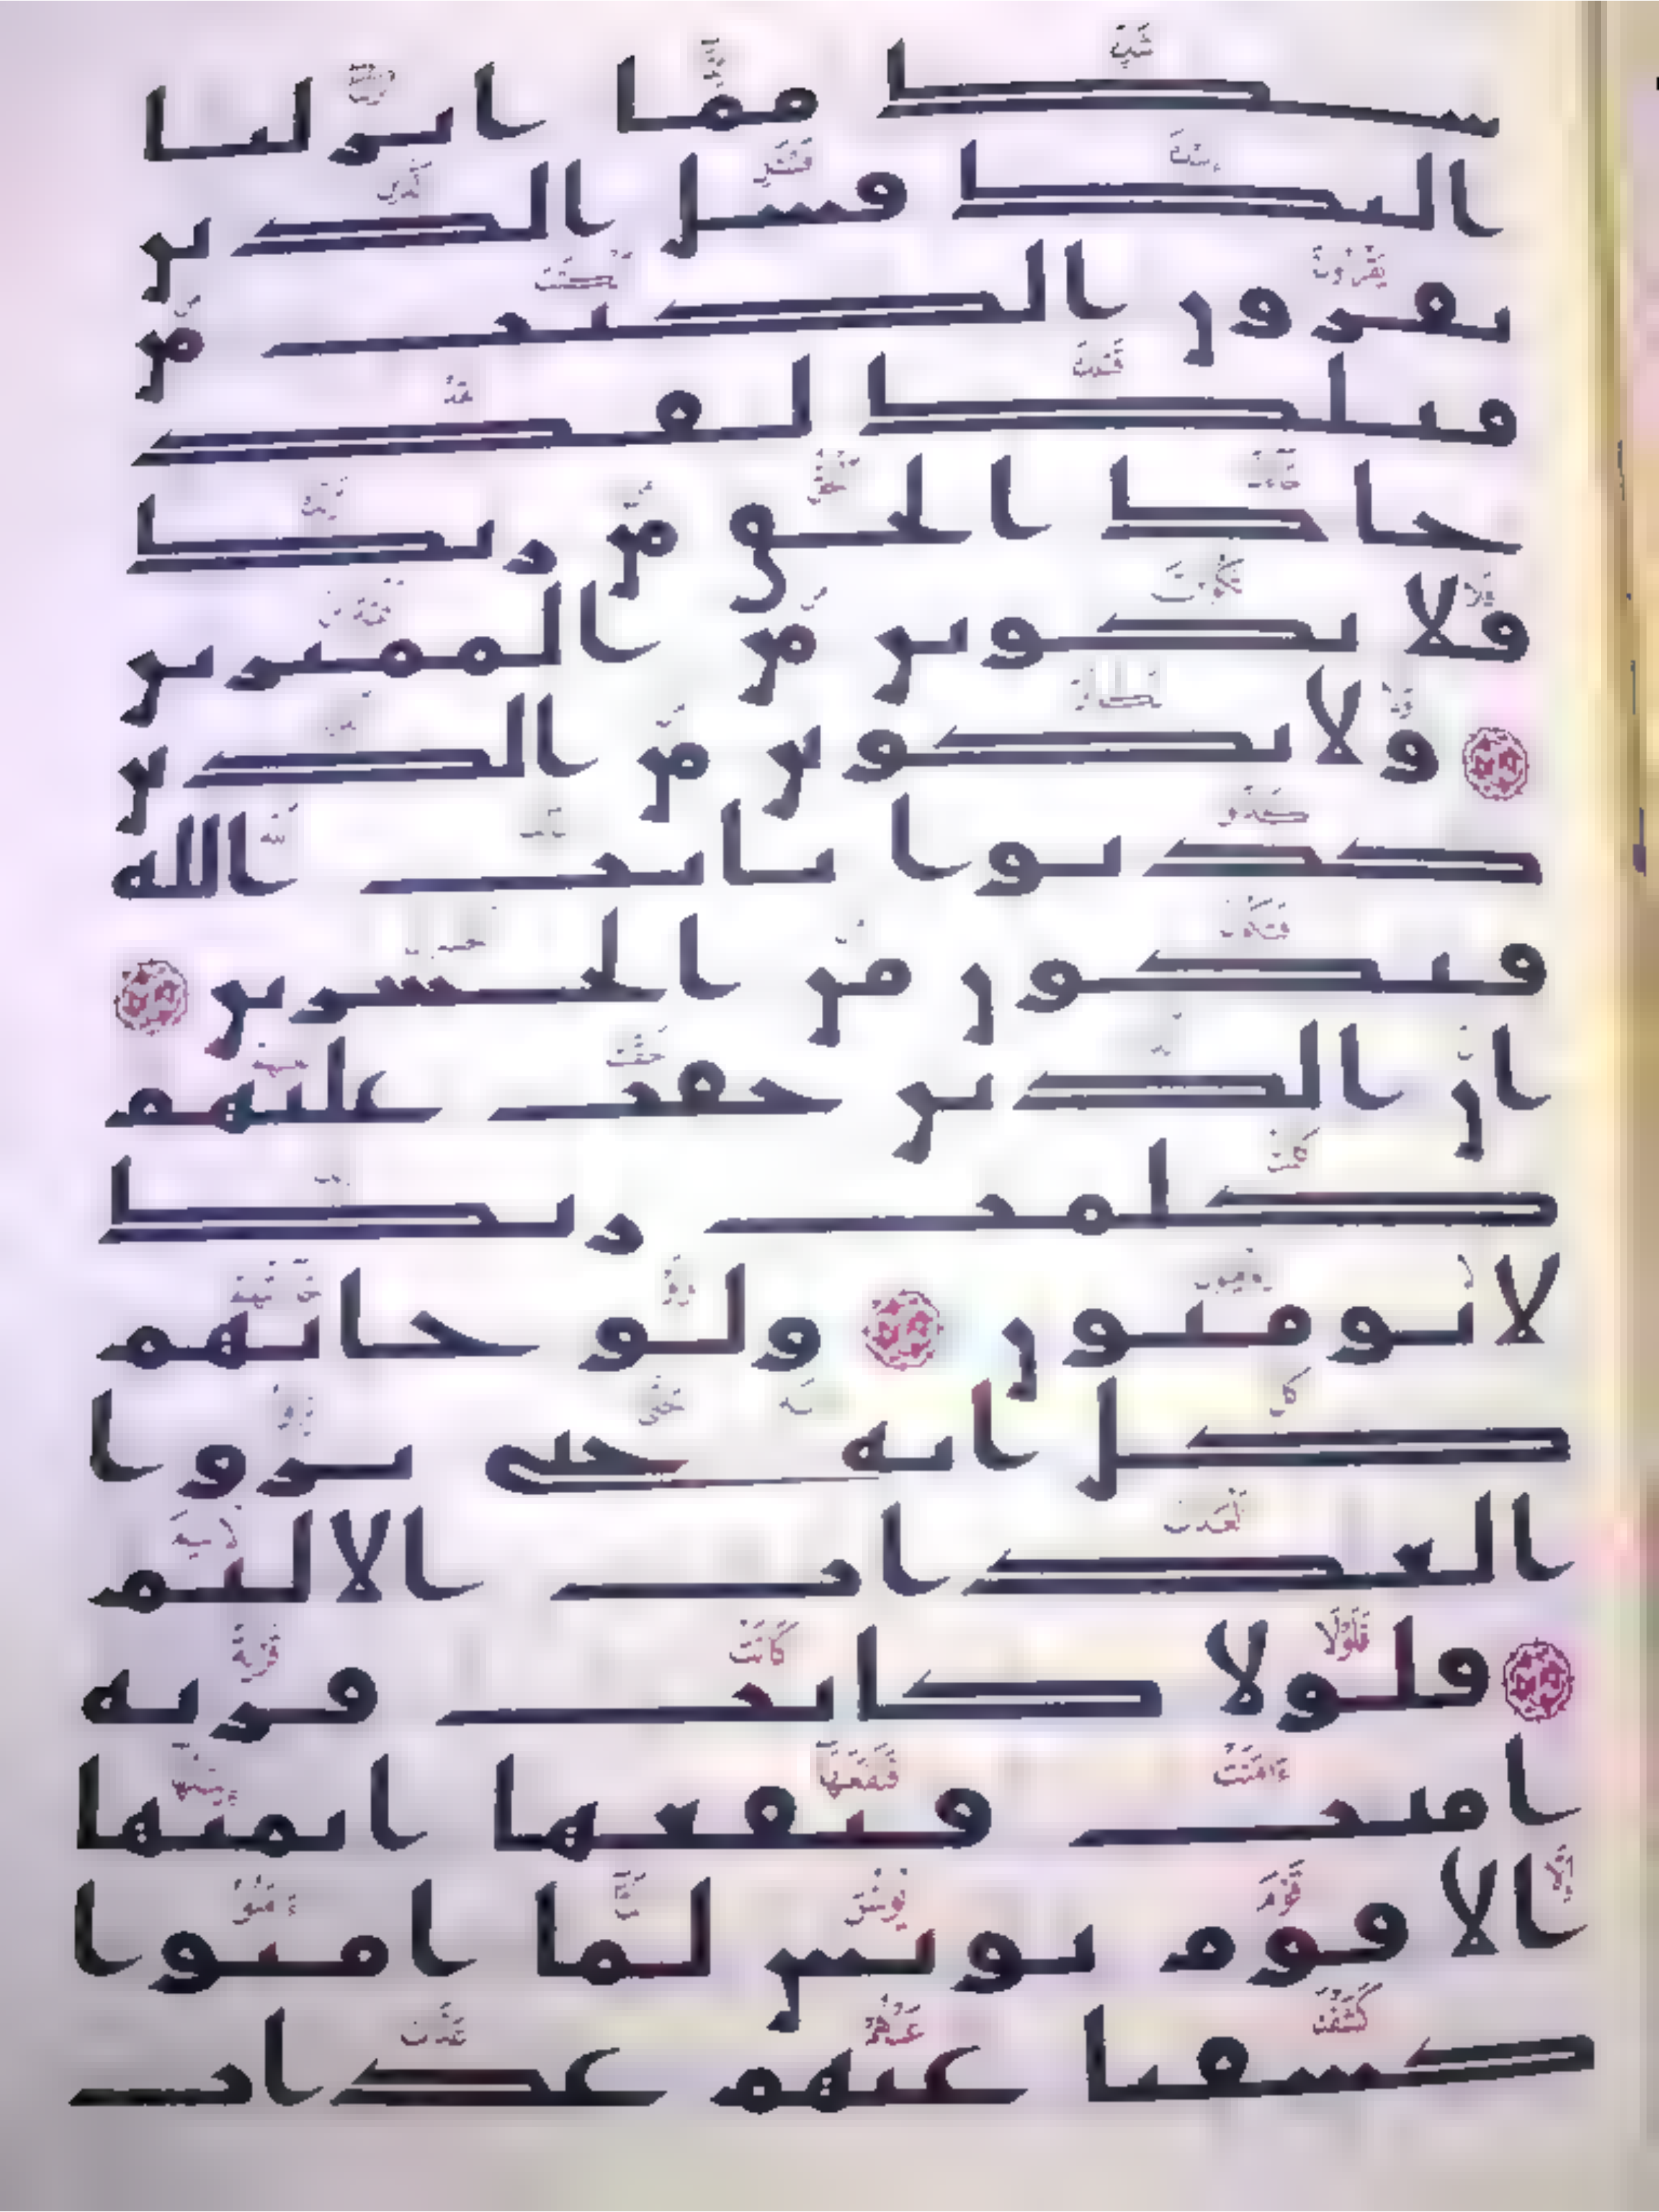 شك مما انزلنا
اليك فسل الذين
يقرون الكتب من
قبلك لقد
جاك الحق من ربك
فلا تكونن من الممترين
ولا تكونن من الذين
كذبوا بايت الله
فتكون من الخسرين
ان الذين حقت عليهم
كلمت ربك
لا يومنون ولو جاتهم
كل ايه حتى يروا
العذاب الاليم
فلولا كانت قريه
امنت فنفعها ايمنها
الا قوم يونس لما امنوا
كشفنا عنهم عذاب